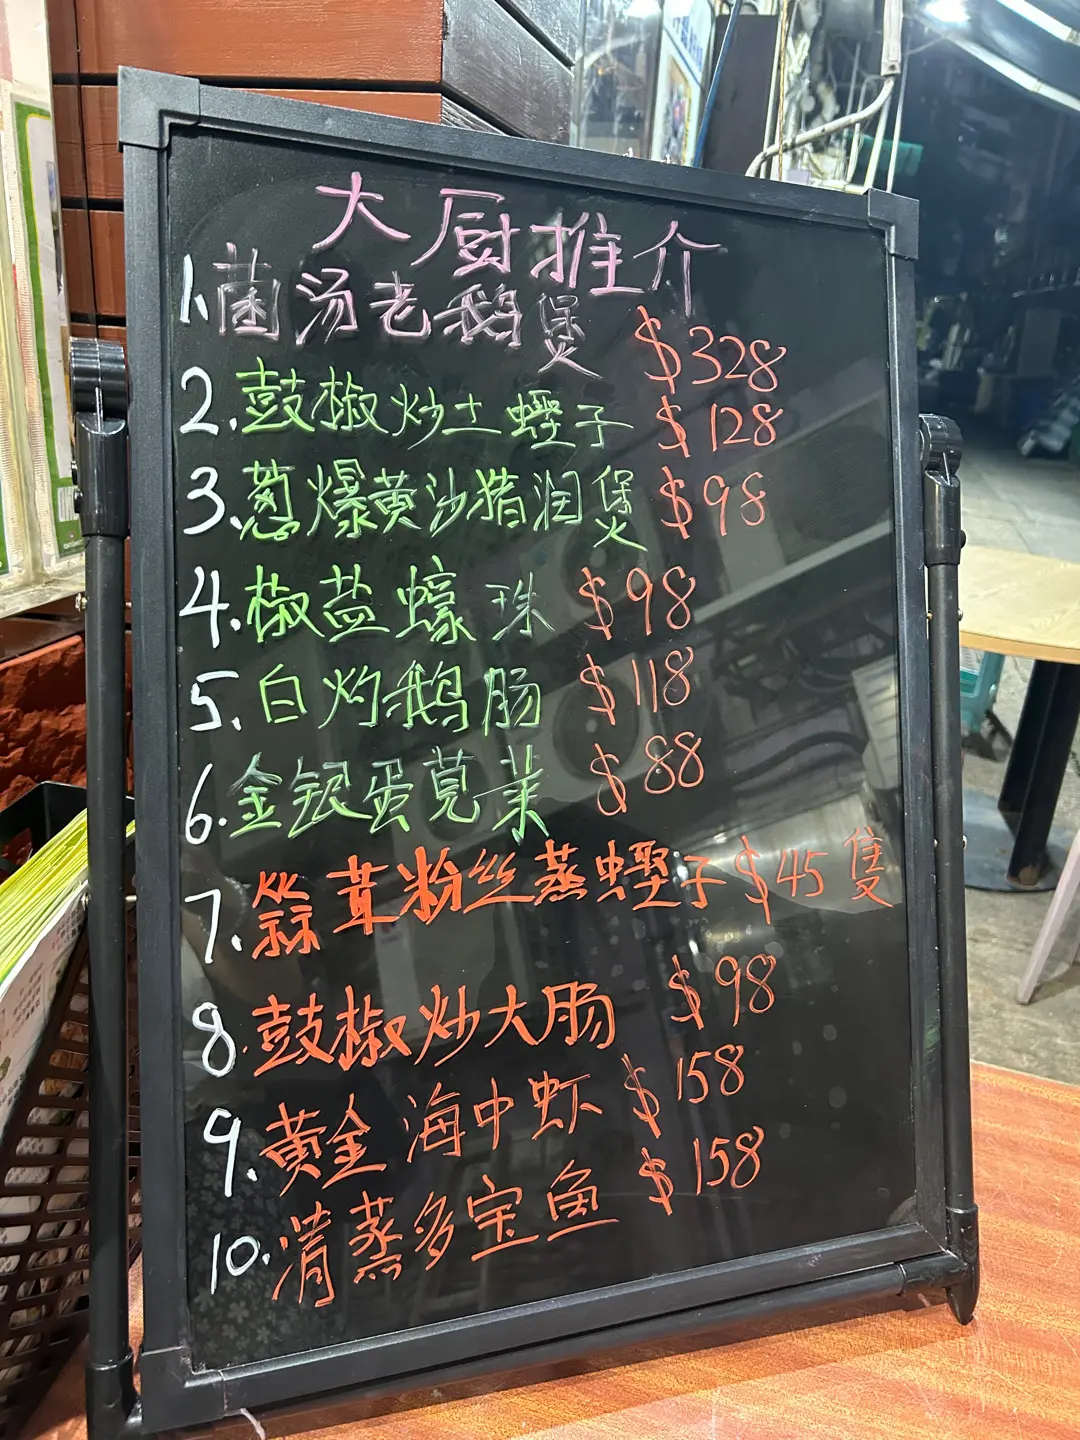 大厨推介
1.菌汤老鹅煲 $328
2.鼓椒炒土蟶子 $128
3.葱爆黄沙猪润煲 $98
4.椒盐蠔珠 $98
5.白灼鹅肠 $118
6.金银蛋苋菜 $88
7.蒜茸粉丝蒸蟶子 $45隻
8.鼓椒炒大肠 $98
9.黄金海中虾 $158
10.清蒸多宝鱼 $158